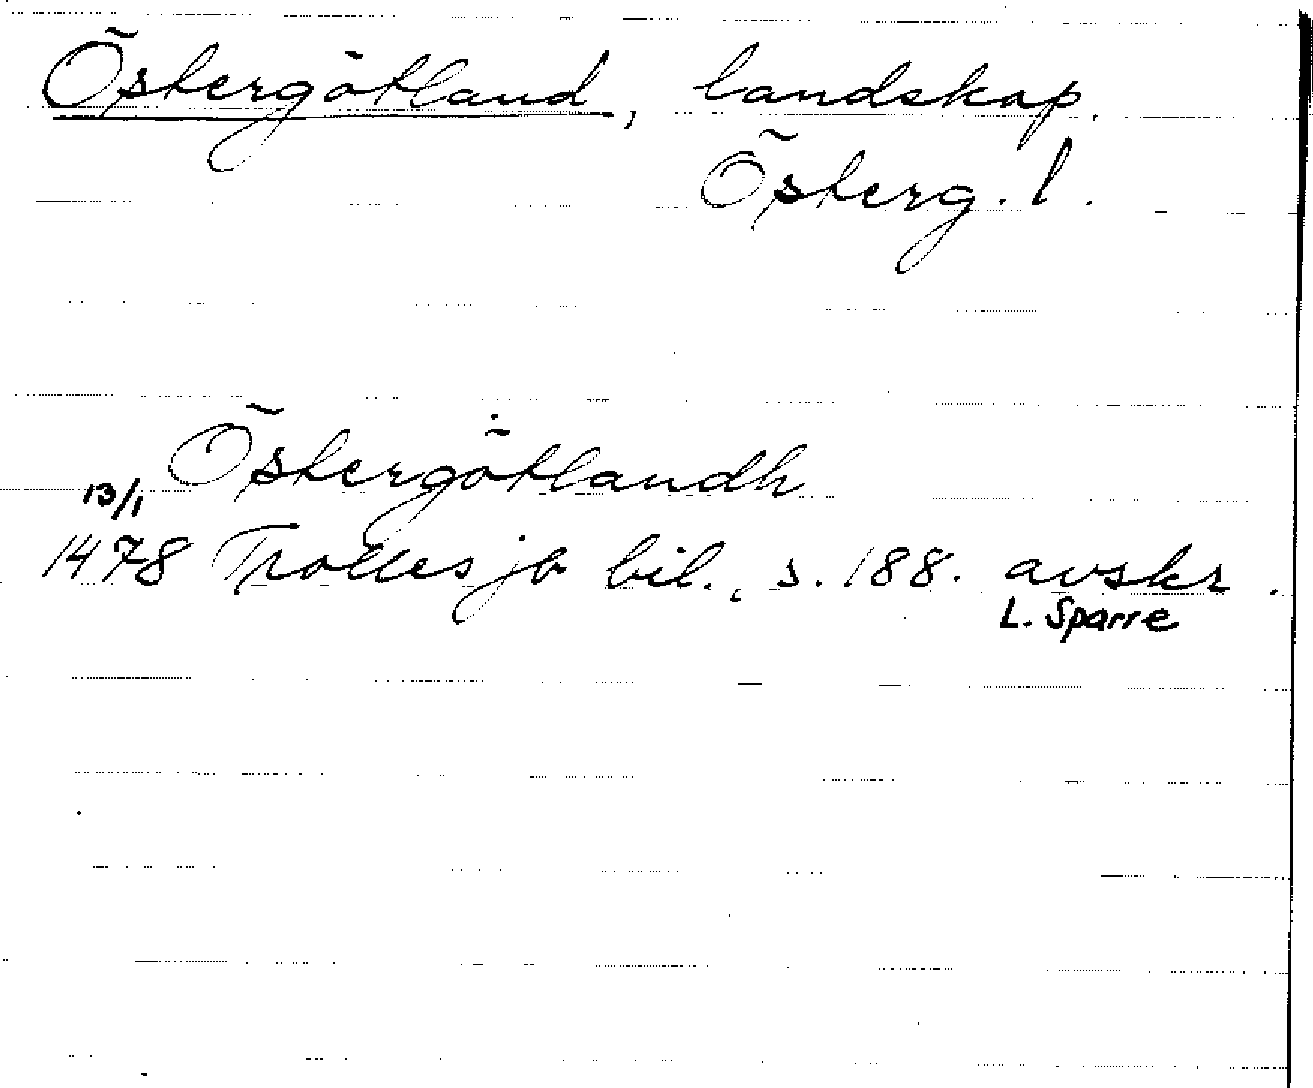 Östergötland, landskap.
Österg. l.
Östergötlandh
13/1
1478 Trolles jb bil., s. 188. avskr.
L. Sparre